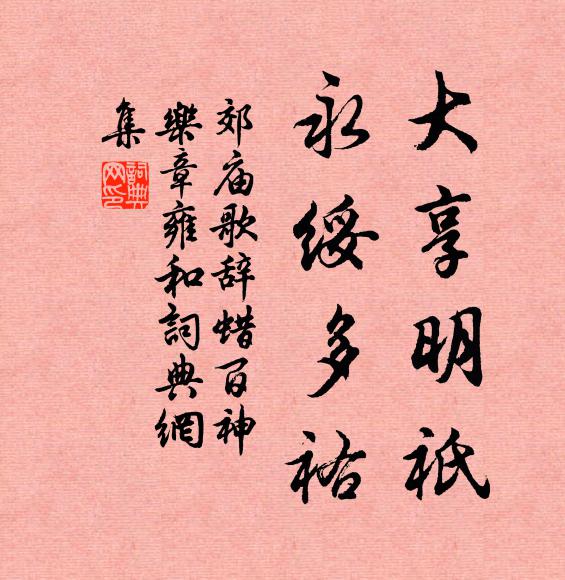 大享明祇
永綏多祐
郊庙歌辞蜡百神
樂章雍和詞典網
集
詞典
网印